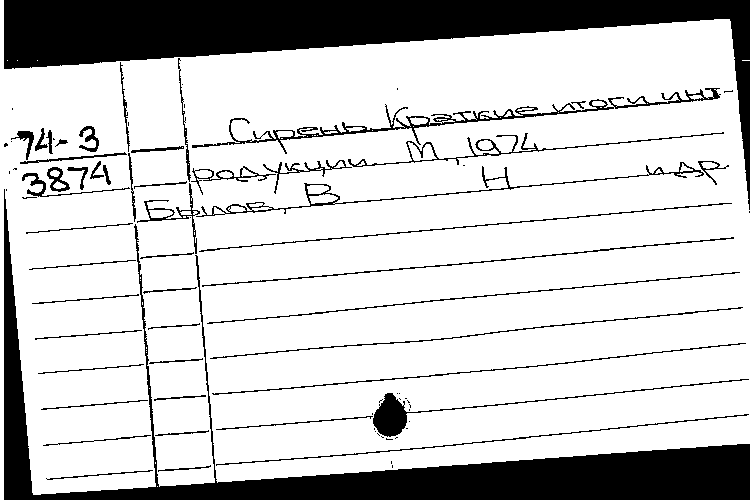 74-3
3874
Сирень. Краткие итоги инт-
родукции. М., 1974.
Былов, В Н и др